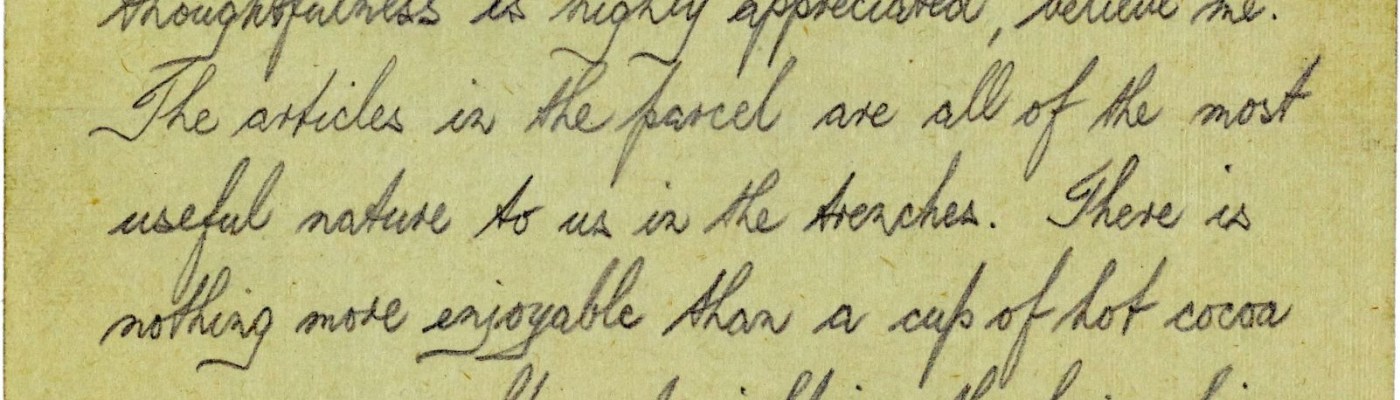 thoughtfulness is highly appreciated, believe me.
The articles in the parcel are all of the most
useful nature to us in the trenches. There is
nothing more enjoyable than a cup of hot cocoa